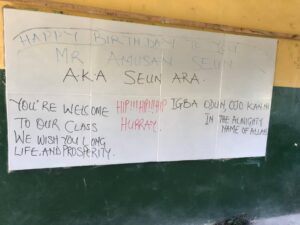 HAPPY BIRTHDAY TO YOU
MR AMUSAN SEUN
A.K.A SEUN ARA.
YOU'RE WELCOME
TO OUR CLASS
WE WISH YOU LONG
LIFE AND PROSPERITY.
HIP!!!HIP!!!HIP
HURRAY.
IGBA ODUN, OJO KAN NI
IN THE ALMIGHTY
NAME OF ALLAH